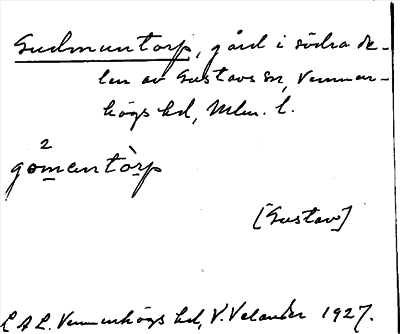 Gudmuntorp, gård i södra de-
len av Gustavs sn, Vemmen-
högs hd, Mlm. l.
2
gömentòrp
[Gustav]
LAL. Vemmenhögs hd, V. Velander 1927.